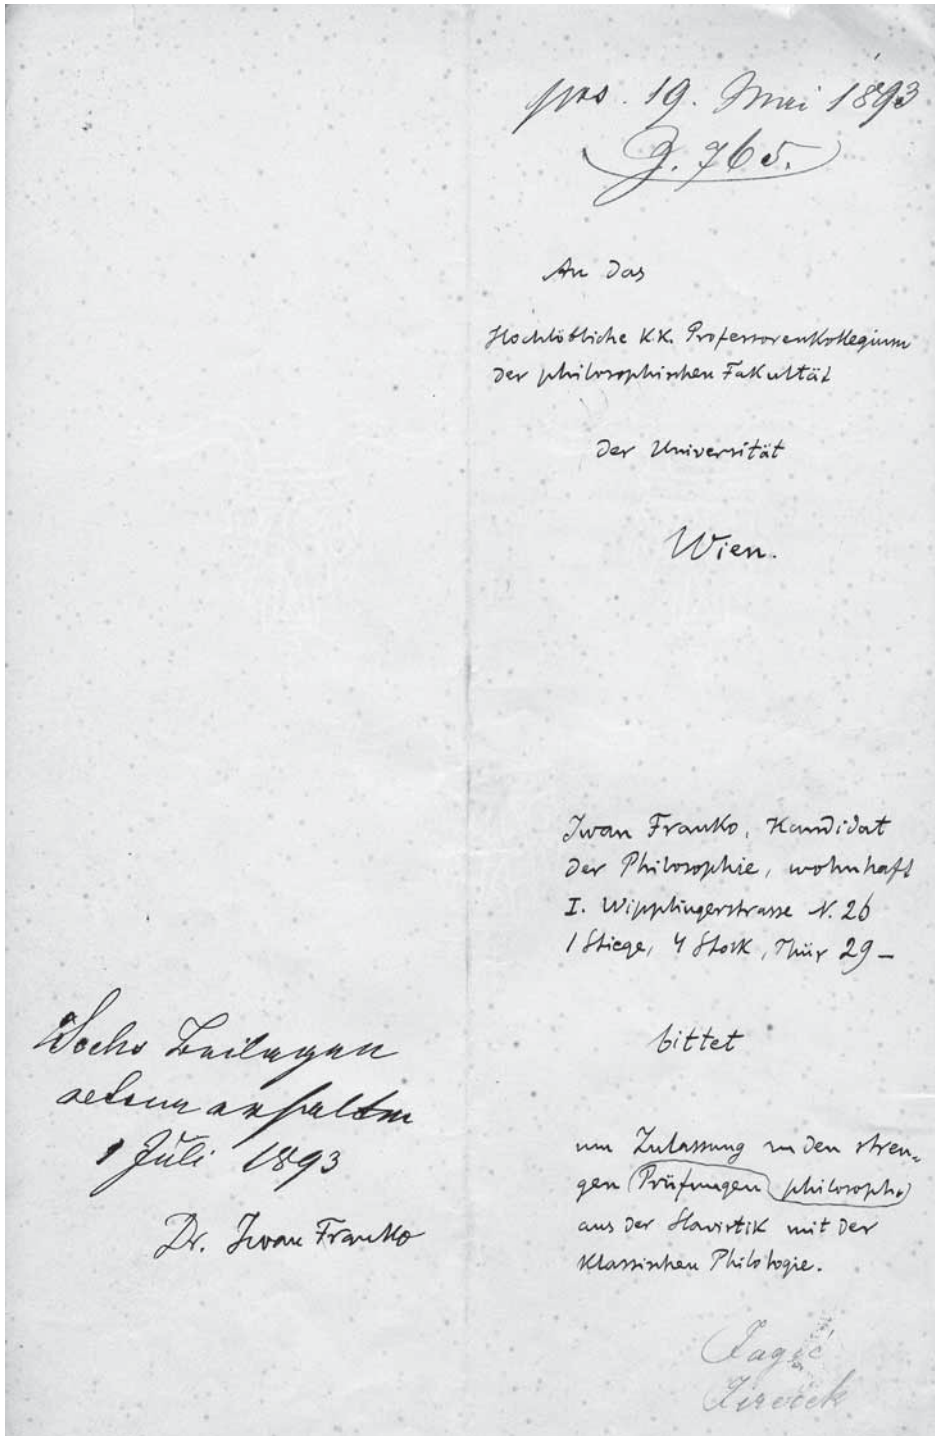 prs. 19. Mai 1893
Z. 765.
An das
Hochlöbliche K.K. Professorenkollegium
der philosophischen Fakultät
der Universität
Wien.
Iwan Franko, Kandidat
der Philosophie, wohnhaft
I. Wipplingerstrasse N. 26
1 Stiege, 4 Stock, Thür 29 –
bittet
um Zulassung zu den stren-
gen (Prüfungen) philosoph.)
aus der Slavistik mit der
klassischen Philologie.
Jagić
Jireček
Sechs Beilagen
retour erhalten
1 Juli 1893
Dr. Iwan Franko